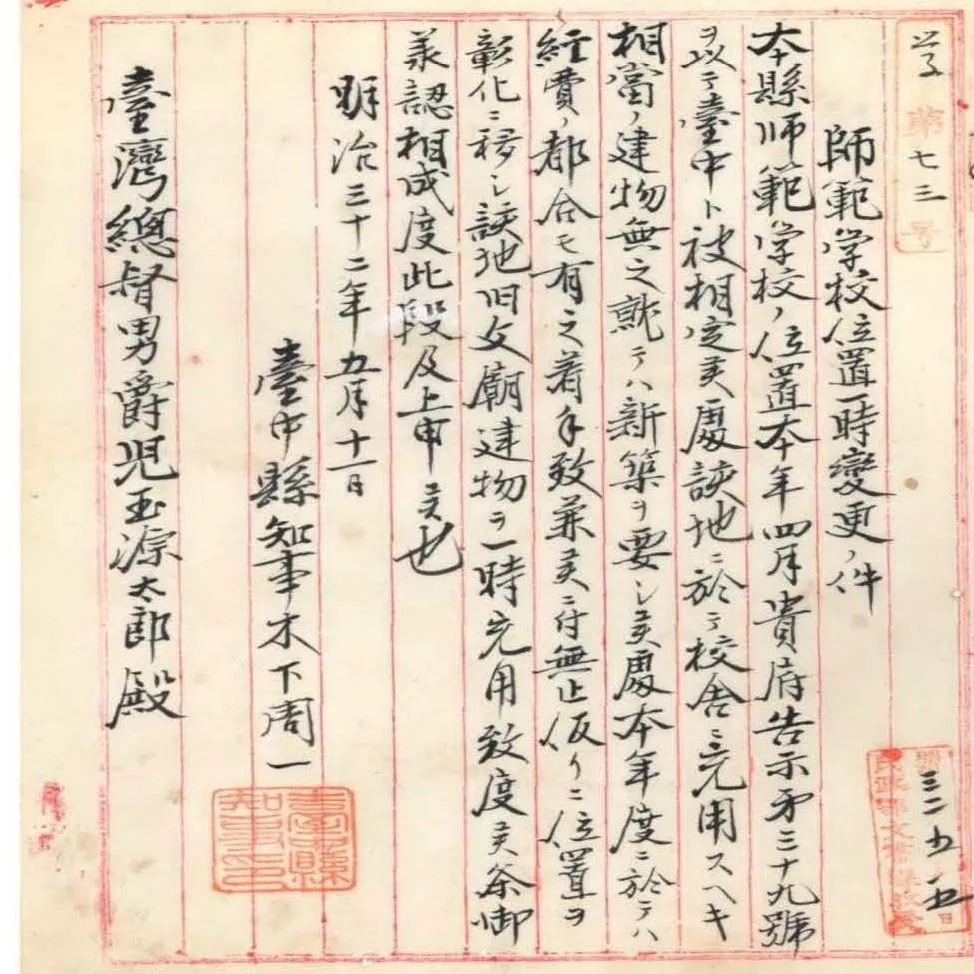 学第七三号
師範学校位置一時變更ノ件
本縣師範学校ノ位置本年四月貴府告示第三十九號
ヲ以テ臺中ト被相定候處該地ニ於テ校舎ニ充用スヘキ
相當ノ建物無之就テハ新築ヲ要シ候處本年度ニ於テハ
経費ノ都合モ有之着手致兼候ニ付無止仮リニ位置ヲ
彰化ニ移シ該地旧文廟建物ヲ一時充用致度候条御
承認相成度此段及上申候也
明治三十二年五月十一日
臺中縣知事木下周一
臺中縣知事之印
臺灣總督男爵児玉源太郎殿
三二五